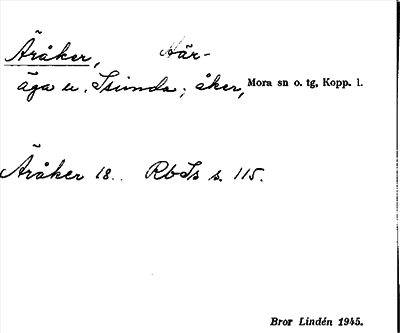 Äråker, Här-
äga u. Isunda; åker, Mora sn o. tg, Kopp. l.
Äråker 18.. RbIs s. 115.
Bror Lindén 1945.